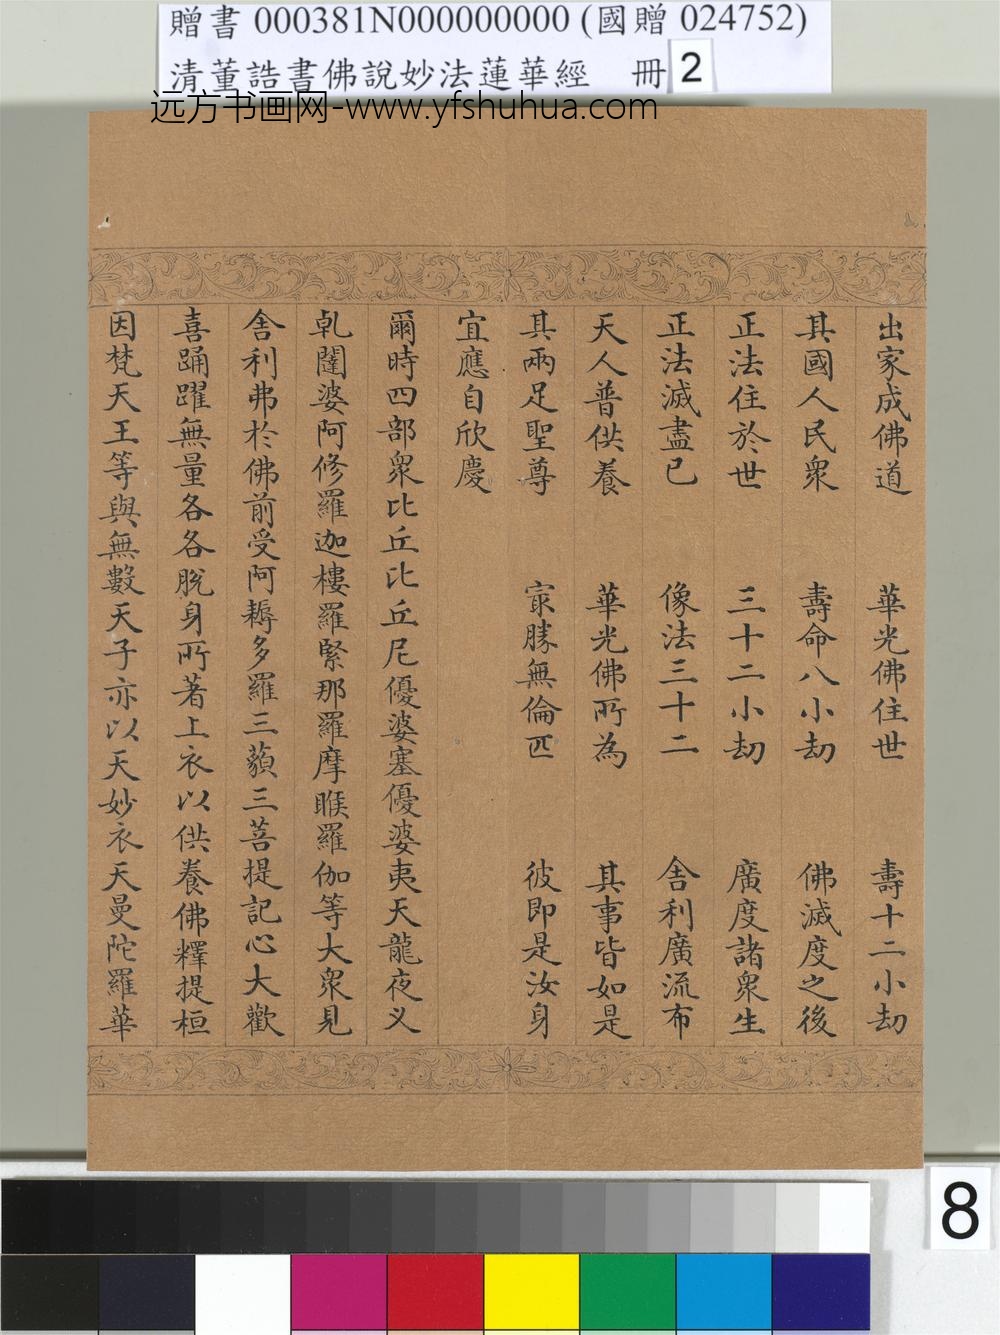 贈書 000381N000000000 (國贈 024752)
清董誥書佛說妙法蓮華經 冊 2
远方书画网-www.yfshuhua.com
出家成佛道 華光佛住世 壽十二小劫
其國人民衆 壽命八小劫 佛滅度之後
正法住於世 三十二小劫 廣度諸衆生
正法滅盡已 像法三十二 舍利廣流布
天人普供養 華光佛所為 其事皆如是
其兩足聖尊 㝡勝無倫匹 彼即是汝身
宜應自欣慶
爾時四部衆比丘比丘尼優婆塞優婆夷天龍夜叉
乹闥婆阿修羅迦樓羅緊那羅摩睺羅伽等大衆見
舍利弗於佛前受阿耨多羅三藐三菩提記心大歡
喜踊躍無量各各脫身所著上衣以供養佛釋提桓
因梵天王等與無數天子亦以天妙衣天曼陀羅華
8